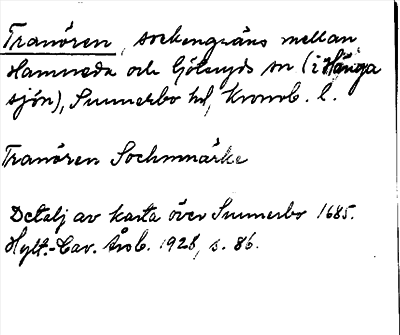 Tranören, sockengräns mellan
Hamneda och Göteryds sn (i Hänga
sjön), Sunnerbo hd, Kronob. l.
Tranören Sochnmärke
Detalj av karta över Sunnerbo 1685.
Hylt.-Cav. Årsb. 1928, s. 86.